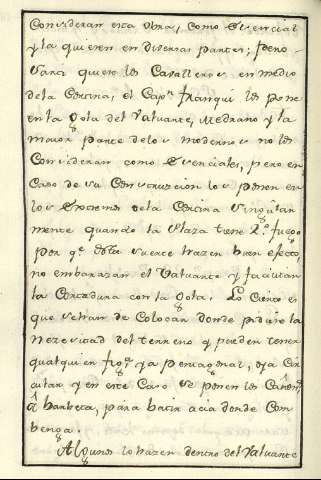 Consideran esta obra, como Esencial
y la quieren en diversas partes; pero
Vanci quiere los Cavalleros en medio
dela Cortina, el Capn. franqui los pone
en la Gola del Valuarte, Medrano y la
maior parte delos modernos no los
Consideran como Esenciales, pero en
Caso de su Construcion los ponen en
los Extremos dela Cortina Singular
mente quando la Plaza tiene 2.º fuego
por qe desta suerte hazen buen efecto,
no embarazan el Valuarte y facilitan
la Cortadura con la Gola. Lo Cierto es
que se han de Colocar donde pidiere la
Nezesidad del terreno y pueden tener
qualquier figa. ya pentagonal, oya Cir
cular y en este Caso se ponen los Cañons.
à barbeta, para hacia donde Com
benga.
Algunos lo hazen dentro del Valuarte